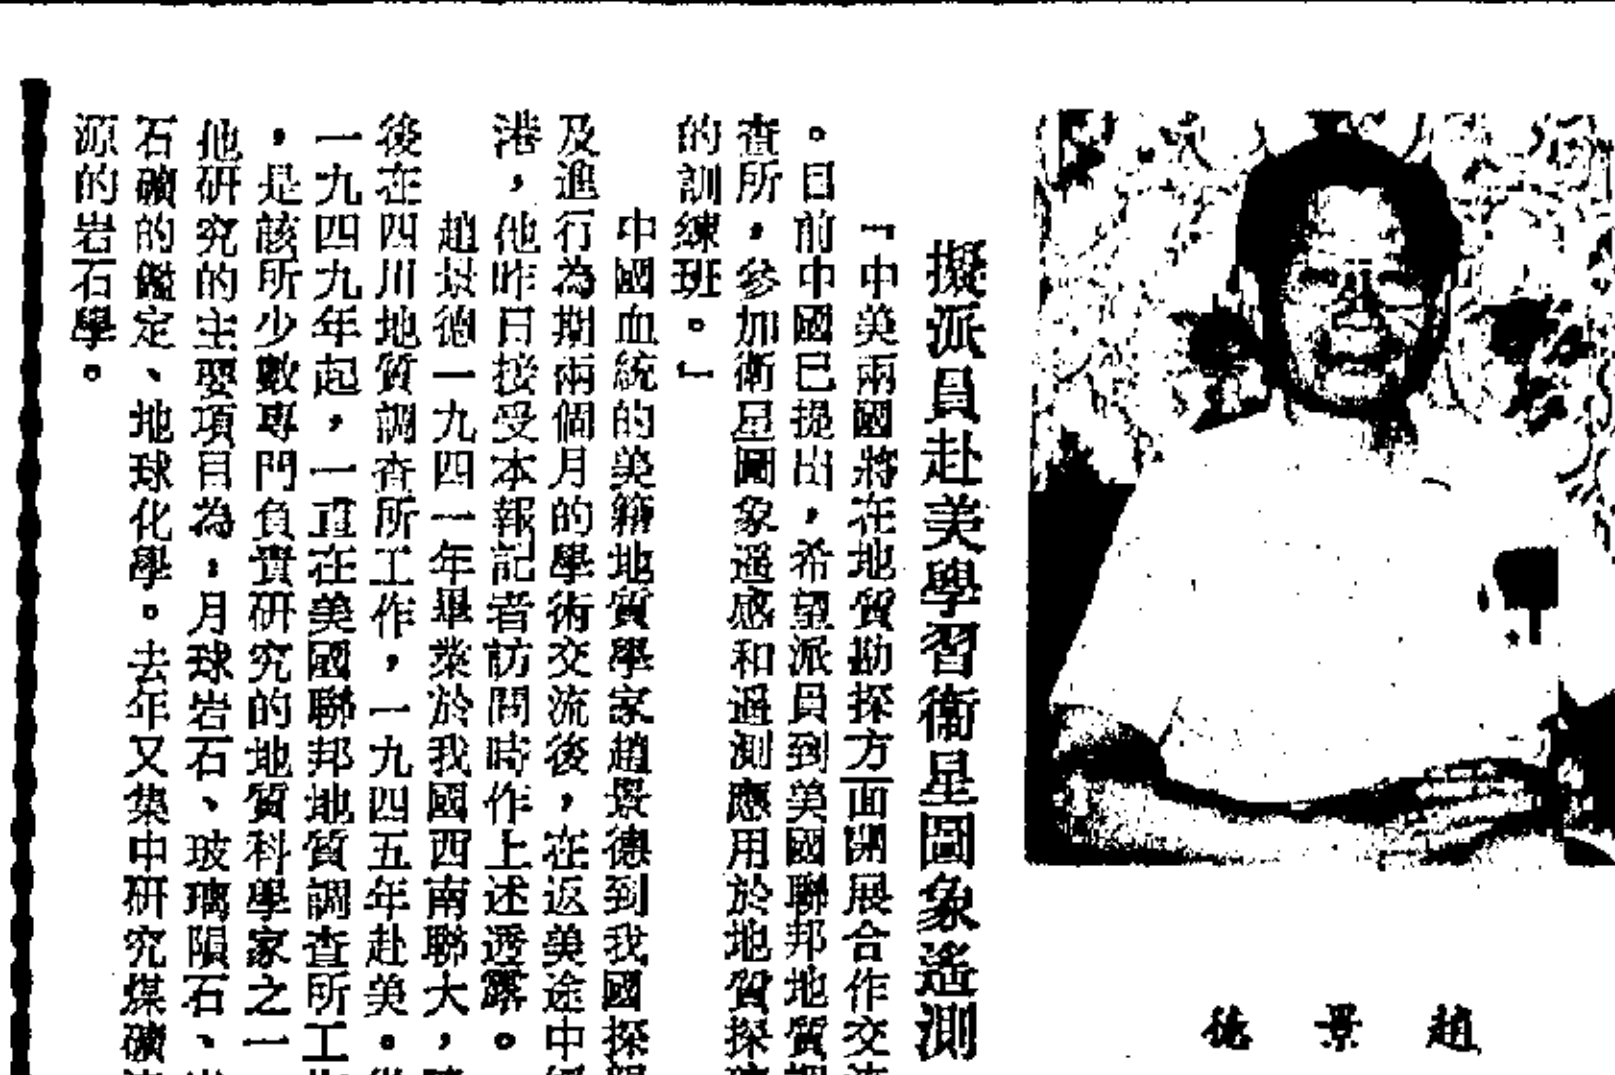 擬派員赴美學習衞星圖象遙測
「中美兩國將在地質勘探方面開展合作交
。目前中國已提出，希望派員到美國聯邦地質調
查所，參加衛星圖象遥感和遥測應用於地質探
的訓練班。」
中國血統的美籍地質學家趙景德到我國探
及進行為期兩個月的學術交流後，在返美途中
港，他昨日接受本報記者訪問時作上述透露。
趙景德一九四一年畢業於我國西南聯大，
後在四川地質調查所工作，一九四五年赴美。
一九四九年起，一直在美國聯邦地質調查所工
，是該所少數專門負責研究的地質科學家之一
他研究的主要項目為：月球岩石、玻璃隕石、
石礦的鑑定、地球化學。去年又集中研究煤礦
源的岩石學。
趙景德